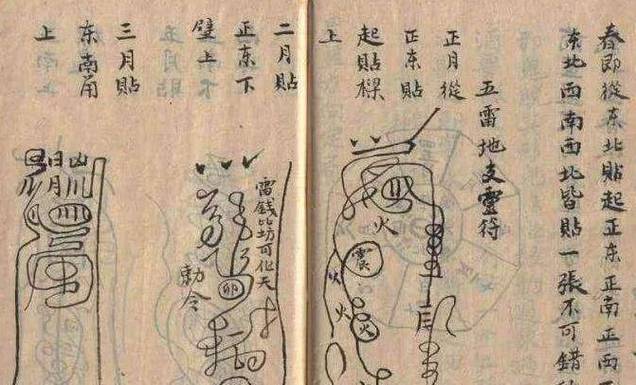 春即從东北貼起正东正南正西
东北西南西北皆貼一張不可錯
五雷地支靈符
正月從
正东貼
起貼樑
上
火
震
火
火
火
二月貼
正东下
壁上
雷錢比坊可化天
卯
勅令
三月貼
东南角
上
日月